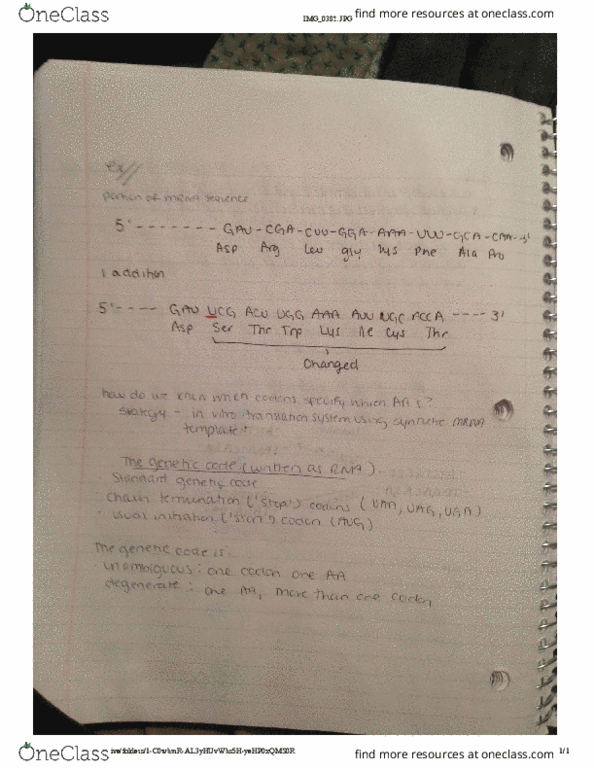 OneClass
IMG_0382.JPG
find more resources at oneclass.com
ex//
portion of mRNA sequence
5' - - - - - - - GAU - CGA - CUU - GGA - AAA - UUU - GCA - CAA -- 3'
Asp Arg Leu gly Lys Phe Ala Pro
1 addition
5' - - - - GAU UCG ACU UGG AAA AUU UGC ACCA - - - - 3'
Asp Ser Thr Trp Lys Ile Cys Thr
Changed
how do we know when codons specify which AA's?
- in vitro translation system using synthetic mRNA
template
The genetic code (written as RNA)
· Standard genetic code
· Chain termination ('stop') codons (UAA, UAG, UGA)
· usual initiation codon (AUG)
The genetic code is:
· unambiguous: one codon one AA
· degenerate: one AA, more than one codon
OneClass
find more resources at oneclass.com
1/1